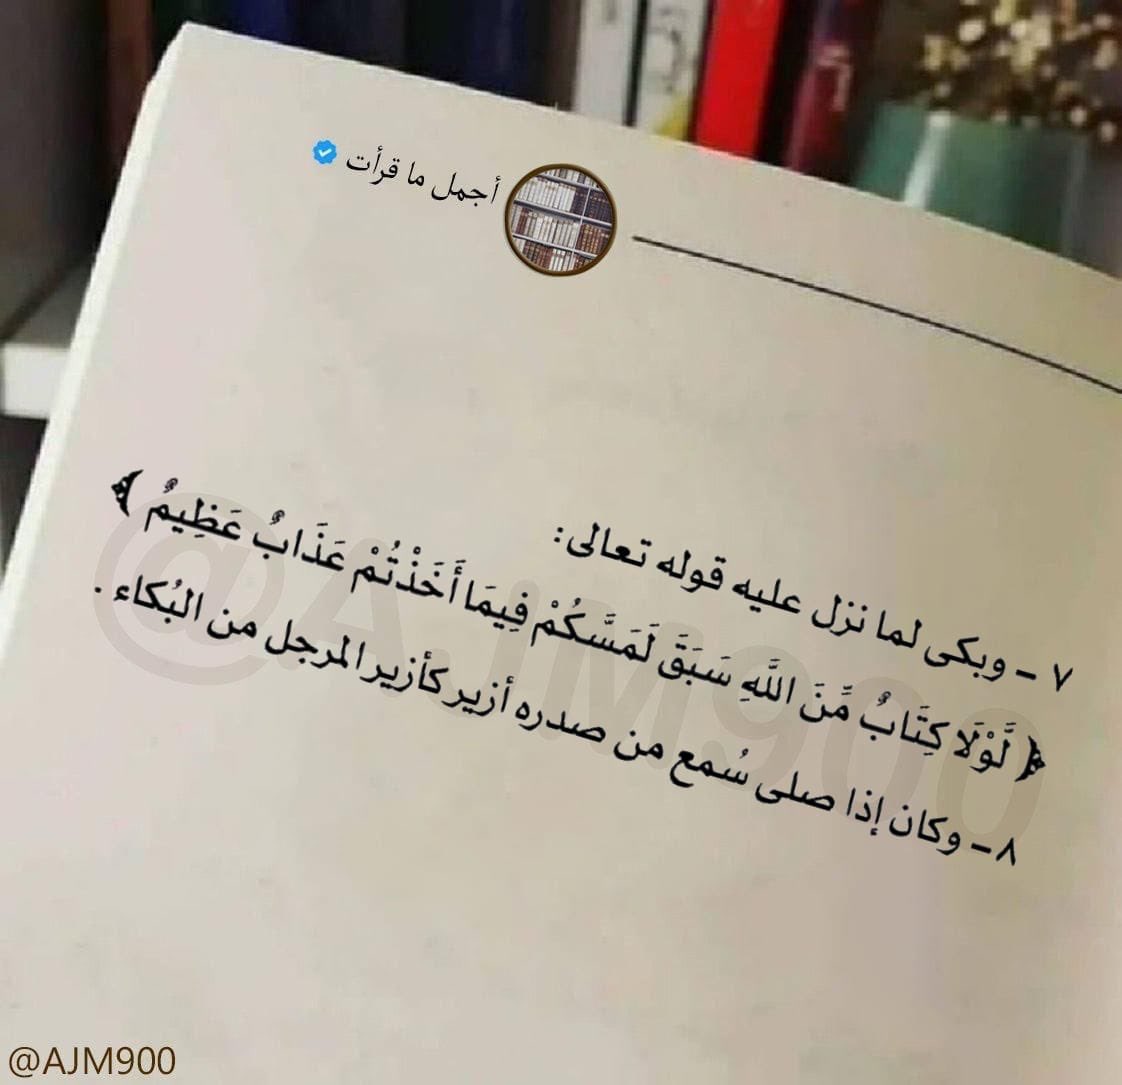 أجمل ما قرأت
٧ – وبكى لما نزل عليه قوله تعالى:
﴿ لَّوْلَا كِتَابٌ مِّنَ اللَّهِ سَبَقَ لَمَسَّكُمْ فِيمَا أَخَذْتُمْ عَذَابٌ عَظِيمٌ ﴾
٨ – وكان إذا صلى سُمع من صدره أزير كأزير المرجل من البُكاء .
@AJM900
@AJM900